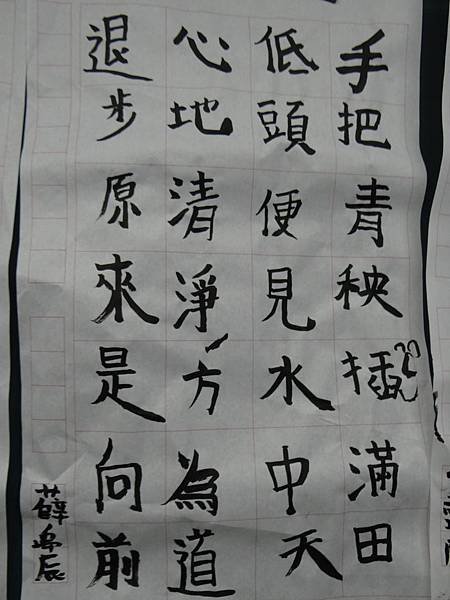 手把青秧插滿田
低頭便見水中天
心地清淨方為道
退步原來是向前
薛丞辰